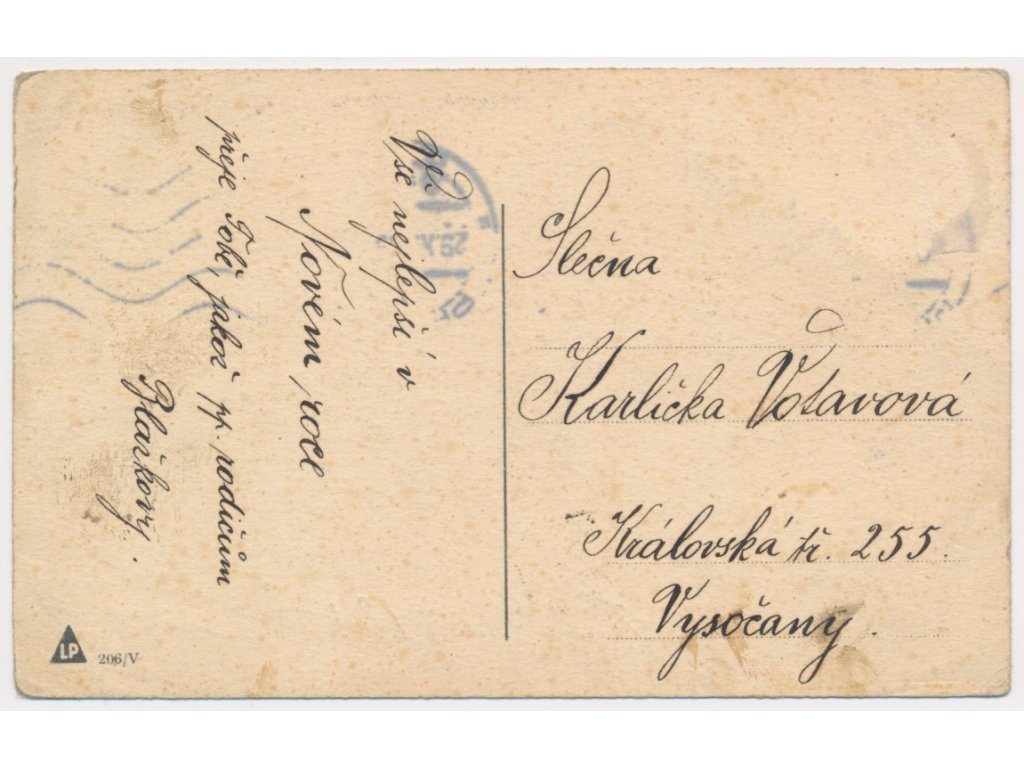 Vše nejlepší v
Novém roce
přeje Tobě, jakož pp. rodičům
Blažkovi.
Slečna
Karlička Votavová
Královská tř. 255.
Vysočany.
LP
206/V